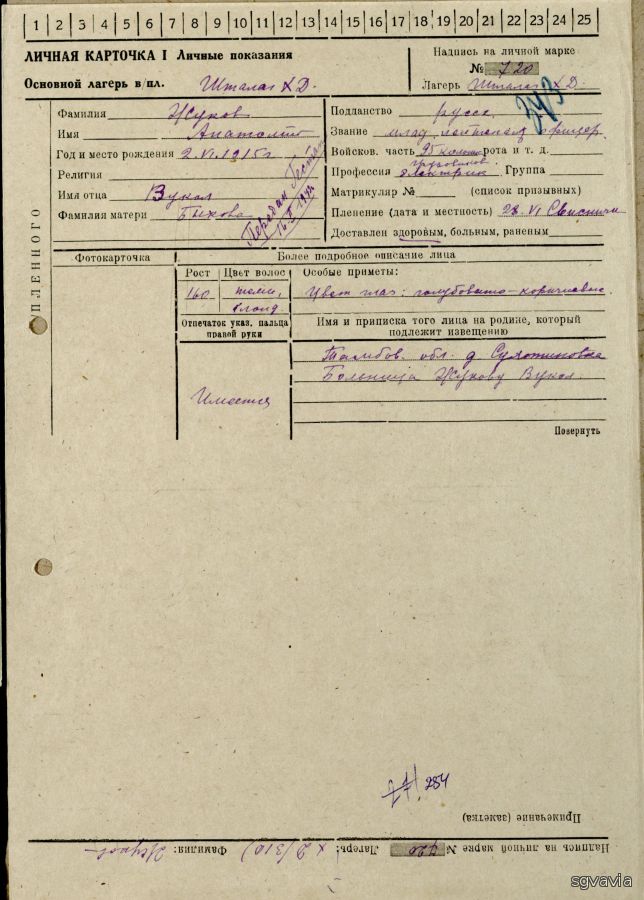 1 2 3 4 5 6 7 8 9 10 11 12 13 14 15 16 17 18 19 20 21 22 23 24 25
ЛИЧНАЯ КАРТОЧКА I Личные показания
Основной лагерь в/пл. Шталаг XД.
Надпись на личной марке
№ 720
Лагерь Шталаг XД.
373
Фамилия Жуков
Имя Анатолий
Год и место рождения 2.VI.1915г
Религия
Имя отца Вукол
Фамилия матери Быкова
Передан Гестапо
16.II 1944
Подданство русск.
Звание млад. лейтенант офицер
Войсков. часть 95 рота и т. д.
Профессия электрик Группа
Матрикуляр № (список призывных)
Пленение (дата и местность) 28.VI
Доставлен здоровым, больным, раненым
ПЛЕННОГО
Фотокарточка
Более подробное описание лица
Рост Цвет волос Особые приметы:
160 темн. Цвет глаз: голубовато-коричневые
блонд.
Отпечаток указ. пальца правой руки
Имя и приписка того лица на родине, который
подлежит извещению
Тамбов. обл. д. Сухотиновка
Больница Жукову Вукол.
Имеется
Повернуть
284
Примечание (заметка)
Надпись на личной марке № 720 Лагерь: X Д/310) Фамилия: Жуков
sgvavia